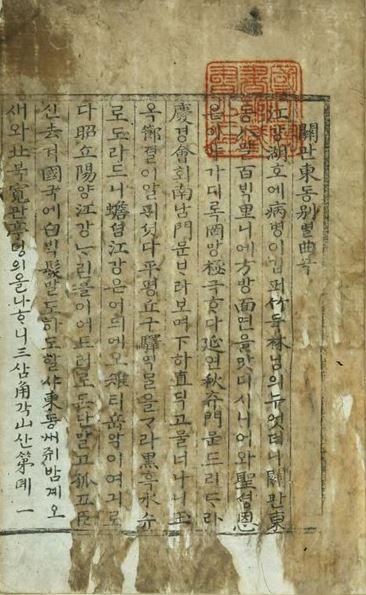 關관東동別별曲곡
江강湖호에病병이깁퍼竹듁林님의누엇더니關관東
동八팔百ᄇᆡᆨ里니에方방面면을맛디시니어와聖셩恩
은이야가디록罔망極극ᄒᆞ다延연秋츄門문드리ᄃᆞ라
慶경會회南남門문ᄇᆞ라보며下하直직고믈너나니玉
옥節졀이알ᄑᆡ셧다平평丘구驛역ᄆᆞᆯ을ᄀᆞ라黑흑水슈
로도라드니蟾셤江강은어듸메오雉티岳악이여긔로
다昭쇼陽양江강ᄂᆞ린믈이어드러로든단말고孤고臣
신去거國국에白ᄇᆡᆨ髮발도하도할샤東동州쥐밤계오
새와北북寬관亭뎡의올나ᄒᆞ니三삼角각山산第뎨一